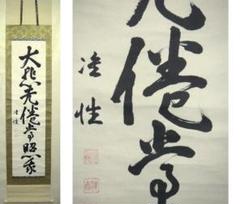 大悲无倦常照我
无倦常
性